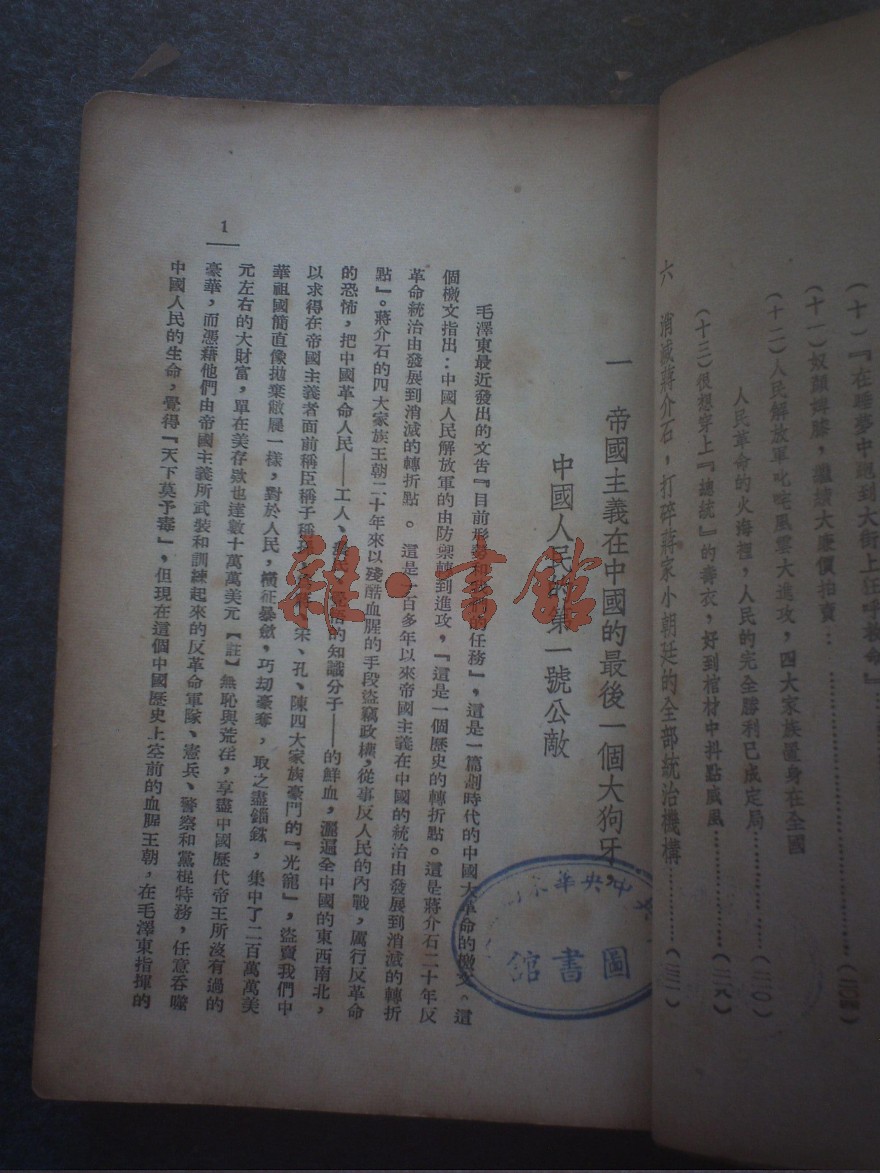 （十）『在睡夢中跑到大街上狂呼救命』
（十一）奴顏婢膝，繼續大廉價拍賣：…………
（十二）人民解放軍叱咤風雲大進攻，四大家族置身在全國
人民革命的火海裡，人民的完全勝利已成定局…………（二二〇）
（十三）很想穿上『總統』的壽衣，好到棺材中抖點威風…………（二二八）
六　消滅蔣介石，打碎蔣家小朝廷的全部統治機構…………
一　帝國主義在中國的最後一個大狗牙，
中國人民的第一號公敵
毛澤東最近發出的文告『目前形勢和我們的任務』，這是一篇劃時代的中國大革命的檄文。這
個檄文指出：中國人民解放軍的由防禦轉到進攻，『這是一個歷史的轉折點。這是蔣介石二十年反
革命統治由發展到消滅的轉折點。這是一百多年以來帝國主義在中國的統治由發展到消滅的轉折
點』。蔣介石的四大家族王朝二十年來以殘酷血腥的手段盜竊政權，從事反人民的內戰，厲行反革命
的恐怖，把中國革命人民——工人、農民、的知識分子——的鮮血，灑遍全中國的東西南北，
以求得在帝國主義者面前稱臣稱子稱宋、孔、陳四大家族豪門的『光寵』，盜賣我們中
華祖國簡直像拋棄敝屣一樣，對於人民，橫征暴斂，巧刧豪奪，取之盡錙銖，集中了二百萬萬美
元左右的大財富，單在美存欵也達數十萬萬美元【註】無恥與荒淫，享盡中國歷代帝王所沒有過的
豪華，而憑藉他們由帝國主義所武裝和訓練起來的反革命軍隊、憲兵、警察和黨棍特務，任意吞噬
中國人民的生命，覺得『天下莫予毒』，但現在這個中國歷史上空前的血腥王朝，在毛澤東指揮的
1
圖書館
雜·書館